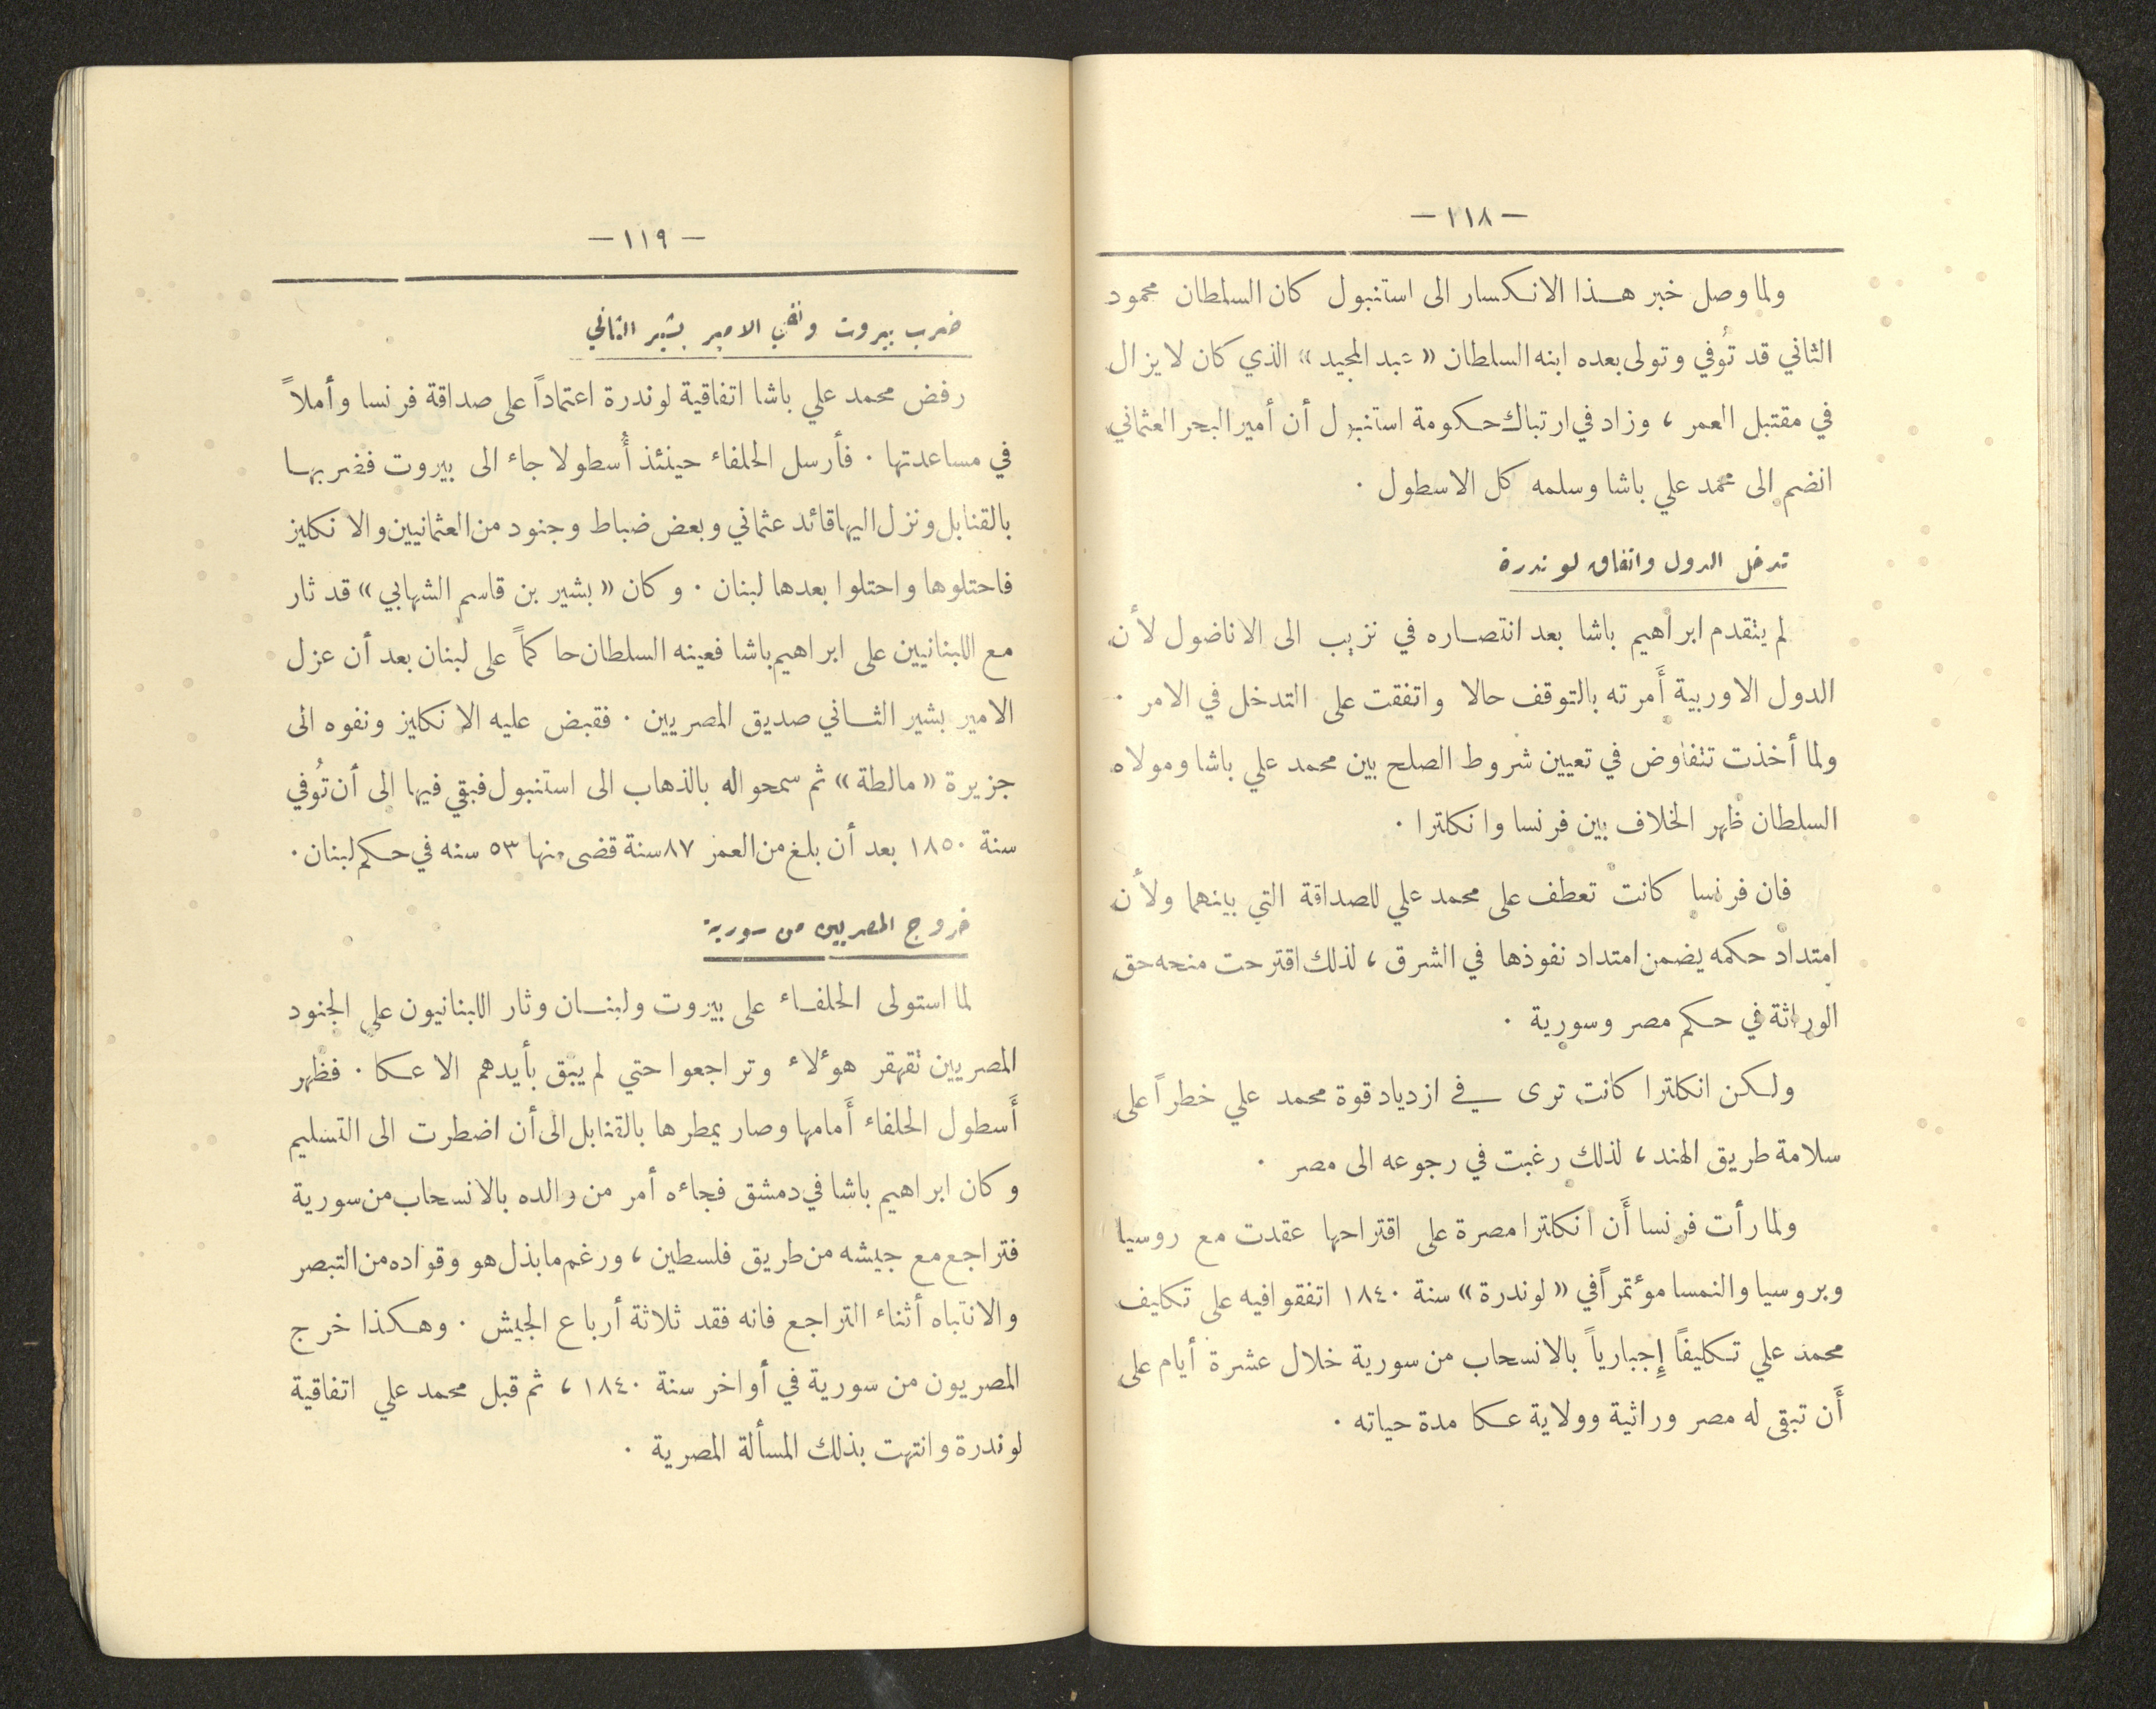 — ١١٨ —
ولما وصل خبر هـذا الانـكسار الى استنبول كان السلطان محمود
الثاني قد تُوفي وتولى بعده ابنه السلطان « عبد المجيد » الذي كان لا يزال
في مقتبل العمر ، وزاد في ارتباك حـكومة استنبول أن أمير البحر العثماني
انضم الى محمد علي باشا وسلمه كل الاسطول .
تدخل الدول واتفاق لوندرة
لم يتقدم ابراهيم باشا بعد انتصـاره في نزيب الى الاناضول لأن
الدول الاوربية أَمرته بالتوقف حالا واتفقت على التدخل في الامر .
ولما أخذت تتفاوض في تعيين شروط الصلح بين محمد علي باشا ومولاه
السلطان ظهر الخلاف بين فرنسا وانكلترا .
فان فرنسا كانت تعطف على محمد علي للصداقة التي بينهما ولأن
امتداد حكمه يضمن امتداد نفوذها في الشرق ، لذلك اقترحت منحه حق
الوراثة في حـكم مصر وسورية .
ولـكن انكلترا كانت ترى في ازدياد قوة محمد علي خطراً على
سلامة طريق الهند ، لذلك رغبت في رجوعه الى مصر .
ولما رأت فرنسا أَن انكلترا مصرة على اقتراحها عقدت مع روسيا
وبروسيا والنمسا مؤتمراً في « لوندرة » سنة ١٨٤٠ اتفقوا فيه على تكليف
محمد علي تـكليفاً إجبارياً بالانسحاب من سورية خلال عشرة أيام على
أَن تبقى له مصر وراثية وولاية عـكا مدة حياته .
— ١١٩ —
ضرب بيروت ونفي الامير بشير الثاني
رفض محمد علي باشا اتفاقية لوندرة اعتماداً على صداقة فرنسا وأملاً
في مساعدتها . فأرسل الحلفاء حينئذ أُسطولا جاء الى بيروت فضربهـا
بالقنابل ونزل اليها قائد عثماني وبعض ضباط وجنود من العثمانيين والانكليز
فاحتلوها واحتلوا بعدها لبنان . وكان « بشير بن قاسم الشهابي » قد ثار
مع اللبنانيين على ابراهيم باشا فعينه السلطان حاكماً على لبنان بعد أن عزل
الامير بشير الثـاني صديق المصريين . فقبض عليه الانكليز ونفوه الى
جزيرة « مالطة » ثم سمحوا له بالذهاب الى استنبول فبقي فيها الى أن تُوفي
سنة ١٨٥٠ بعد أن بلغ من العمر ٨٧ سنة قضى منها ٥٣ سنه في حـكم لبنان .
خروج المصريين من سورية
لما استولى الحلفـاء على بيروت ولبنـان وثار اللبنانيون على الجنود
المصريين تقهقر هؤلاء وتراجعوا حتي لم يبق بأيدهم الا عـكا . فظهر
أَسطول الحلفاء أَمامها وصار يمطرها بالقنابل الى أن اضطرت الى التسليم
وكان ابراهيم باشا في دمشق فجاءه أمر من والده بالانسحاب من سورية
فتراجع مع جيشه من طريق فلسطين ، ورغم ما بذل هو وقواده من التبصر
والانتباه أثناء التراجع فانه فقد ثلاثة أرباع الجيش . وهـكذا خرج
المصريون من سورية في أواخر سنة ١٨٤٠ ، ثم قبل محمد علي اتفاقية
لوندرة وانتهت بذلك المسألة المصرية .